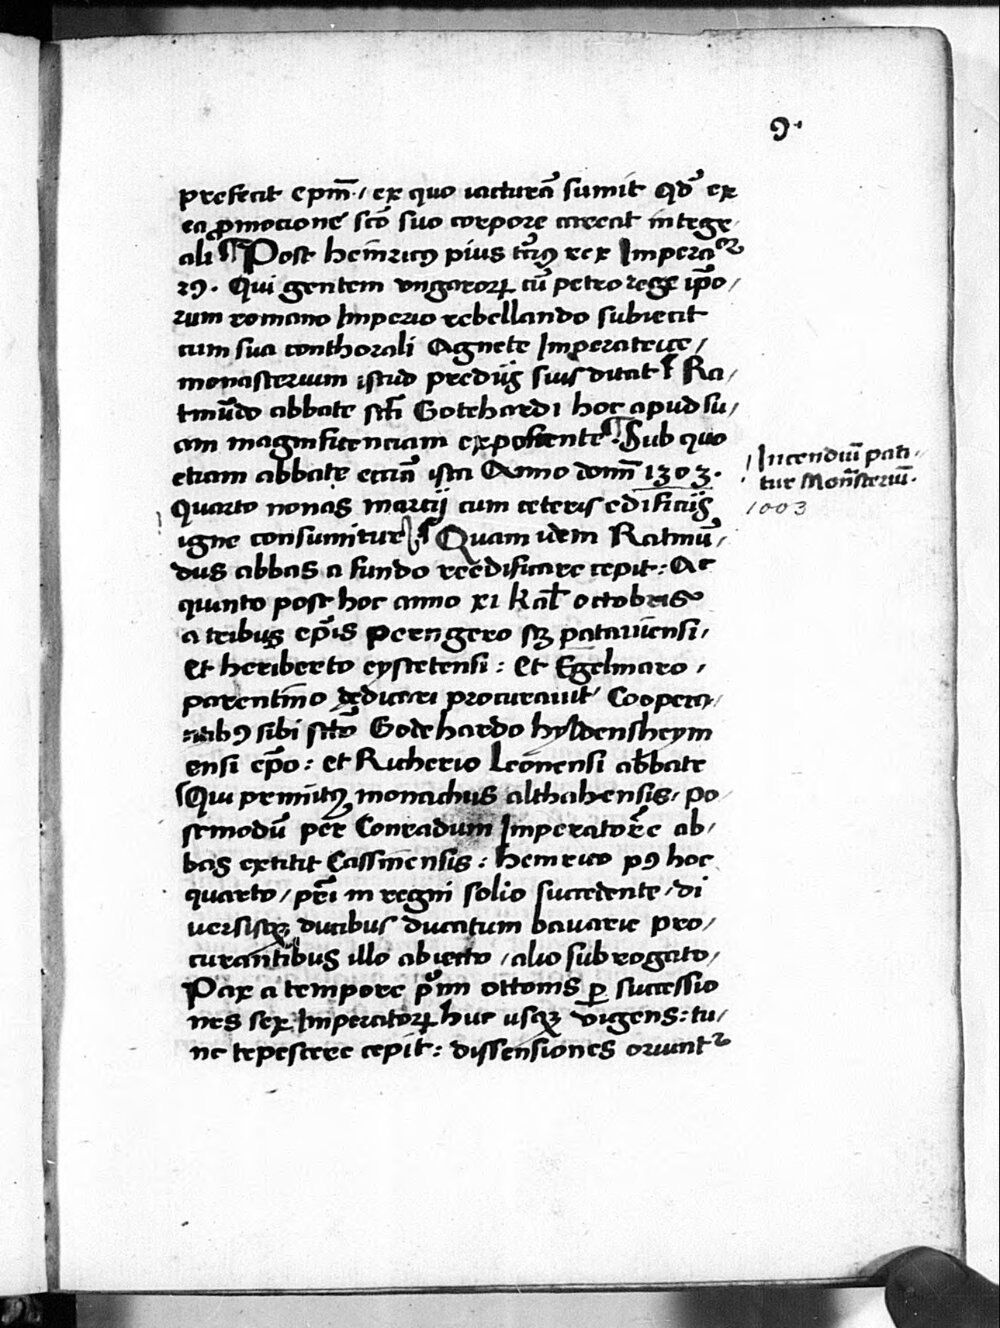 9.
prefecit epm̄. / ex quo iacturā sumit qd̄ ex
ea pmocione scō suo corpore careat intege/
ali ¶ Post heinricꝰ pius tꝰciꝰ rex Impera
Qui gentem vngaroꝝ cū petro rege ip̄o/
rum romano Imperio rebellando subiecit
cum sua conthorali Agnete Imperatrice /
monasterium istud predijs suis ditat ¶ Ra/
tmūdo abbate scti Gotehardi hoc apud su/
am magnificenciam exponente ¶ Sub quo
etiam abbate eccīa ista Anno domī 1303.
Quarto nonas marcij cum ceteris edificijs
igne consumitur ¶ Quam idem Ratmū/
dus abbas a fundo reedificare cepit: Ac
quinto post hoc anno xi kal̄ octobris
a tribus ep̄is Perngero sꝫ patauiensi /
Et heriberto eystetensi : et Egelmaro /
parentino dedicari procurauit Coopera/
ntibꝰ sibi sctō Godehardo hyldensheym
ensi ep̄o : et Richerio Leonensi abbate
Qui primitꝰ monachus althahensis / po
stmodū per Conradum Imperatorē ab/
bas extitit Cassinensis : heinrico pꝰ hoc
quarto / pr̄i in regni solio succedente / di
uersisqꝫ ducibus ducatum bauarie pro/
curantibus illo abiecto / alio subrogato /
Pax a tempore p̄mi ottonis ꝑ successio
nes sex Imperatoꝝ huc usqꝫ vigens: tu/
nc tepescere cepit : dissensiones oriunt᷑
Incendiū pati/
tur Monasteriū.
1003